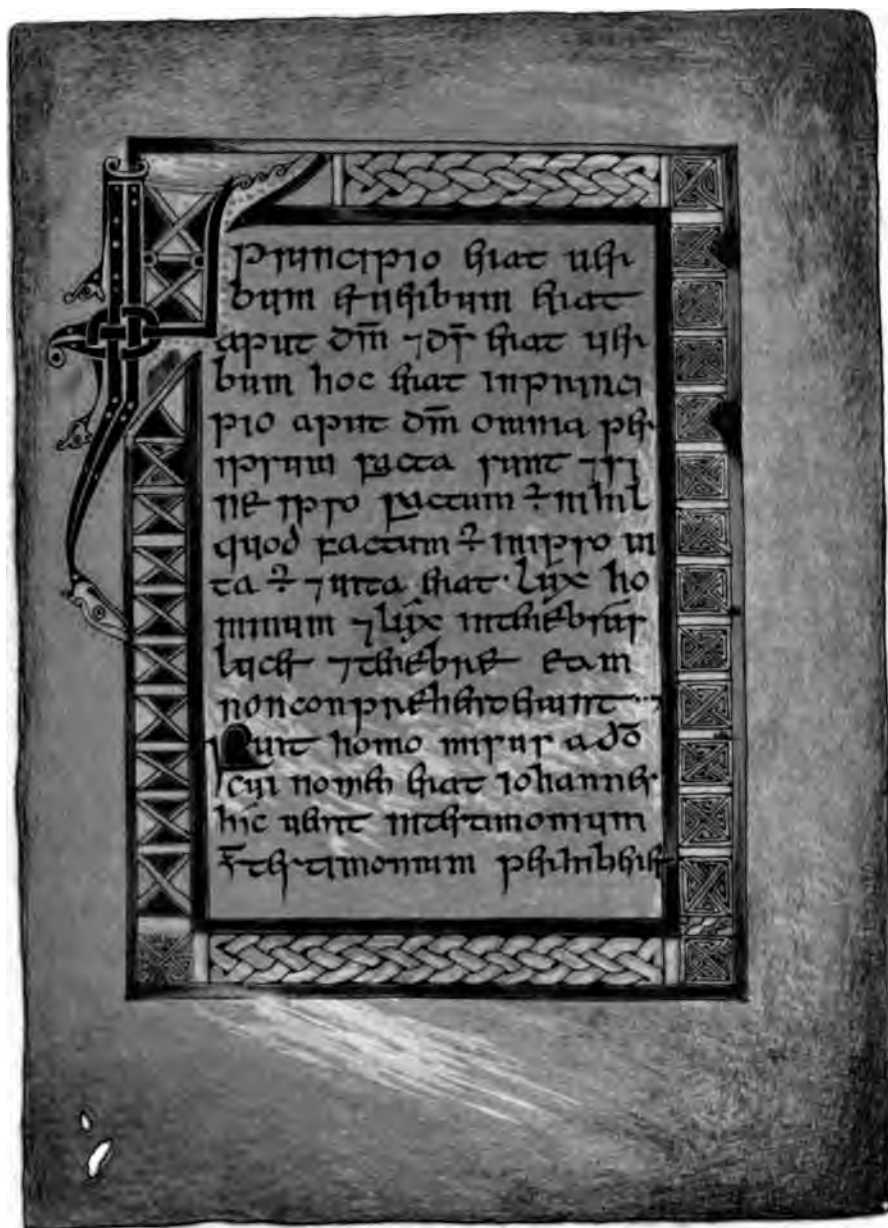 IN principio erat uer
bum et uerbum erat
aput dm̄ ⁊ ds̄ erat uer
bum hoc erat inprinci
pio aput dm̄ omnia per
ipsum facta sunt ⁊ si
ne ipso factum ÷ nihil
quod factum ÷ inipso ui
ta ÷ ⁊ uita erat lux ho
minum ⁊ lux intenebris
lucet ⁊ tenebre eam
nonconprehenderunt
Fuit homo misus ado̅
cui nomen erat iohannes
hic uenit intestimonium
testimonium perhiberet